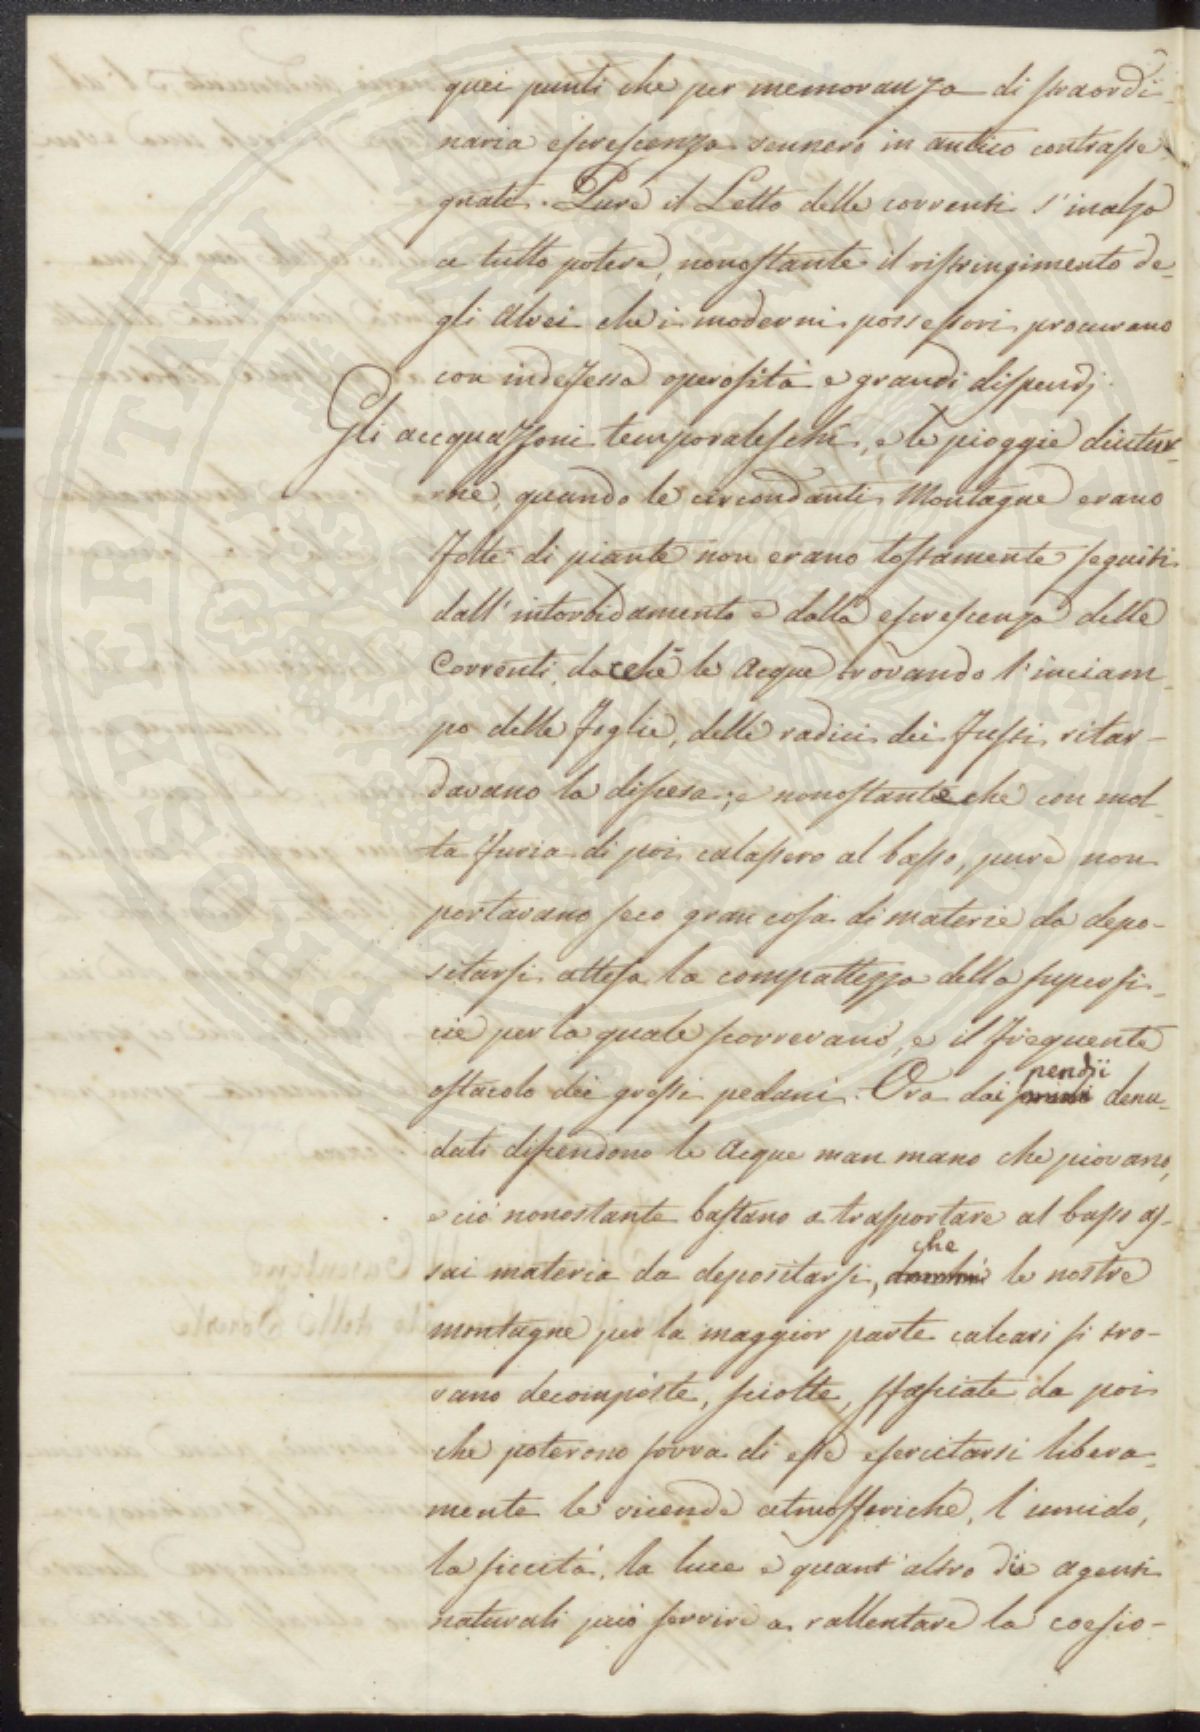 quei punti che per memoranza di straordi-
naria escrescenza vennero in antico contrasse-
gnati. Pure il Letto delle correnti s'inalza
a tutto potere, nonostante il ristringimento de-
gli Alvei che i moderni possessori procurano
con indefessa operosità e grandi dispendj.
Gli acquazzoni temporaleschi, e le pioggie diutur-
ne, quando le circondanti Montagne erano
folte di piante non erano tostamente seguiti
dall'intorbidamento e dalla escrescenza delle
Correnti, dacchè le Acque trovando l'inciam-
po delle foglie, delle radici dei fusti, ritar-
davano la discesa; e nonostante che con mol-
ta furia di poi calassero al basso, pure non
portavano seco gran cosa di materie da depo-
sitarsi attesa la compattezza della superfi-
cie per la quale scorrevano, e il frequente
ostacolo dei grossi pedani. Ora dai pendii denu-
dati discendono le Acque man mano che piovano,
e ciò nonostante bastano a trasportare al basso as-
sai materia da depositarsi, che le nostre
montagne per la maggior parte calcari si tro-
vano decomposte, sciolte, sfasciate da poi
che poterono sovra di esse esercitarsi libera-
mente le vicende atmosferiche, l'umido,
la siccità, la luce e quant'altro die agenti
naturali può servire a rallentare la coesio-